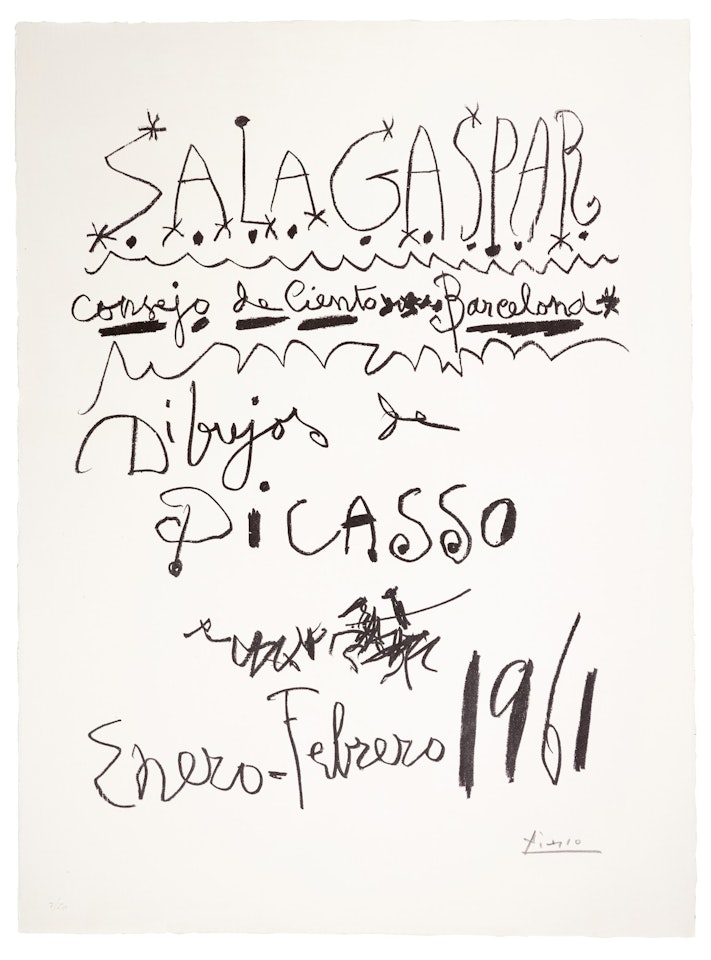 SALA GASPAR
Consejo de Ciento Barcelona
Dibujos de
PICASSO
Enero-Febrero 1961
Picasso